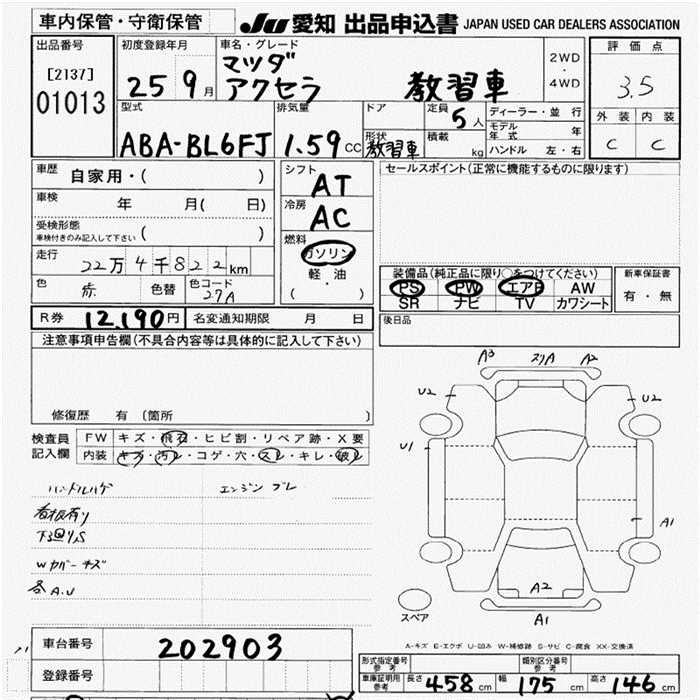 車内保管・守衛保管
JU 愛知 出品申込書 JAPAN USED CAR DEALERS ASSOCIATION
出品番号
[2137]
01013
初度登録年月
25 9月
車名・グレード
マツダ
アクセラ 教習車
2WD
・
4WD
評価点
3.5
外装 内装
C C
型式
ABA-BL6FJ
排気量
1.59 CC
ドア
形状
教習車
定員
5人
積載
kg
ディーラー・並行
モデル年式 年
ハンドル 左・右
車歴 自家用・( )
車検 年 月( 日)
受検形態
車検付きのみ記入して下さい ( )
走行 22万4千822km
色 赤 色替 色コード 27A
シフト
AT
冷房
AC
燃料
ガソリン
軽・油
( )
セールスポイント(正常に機能するものに限ります)
装備品(純正品に限り○をつけてください)
PS PW エアB AW
SR ナビ TV カワシート
新車保証書
有・無
R券 12,190円 名変通知期限 月 日
後日品
注意事項申告欄(不具合内容等は具体的に記入して下さい)
修復歴 有 〔箇所 〕
検査員記入欄
FW キズ・飛石・ヒビ割・リペア跡・X要
内装 キズ・汚レ・コゲ・穴・スレ・キレ・破レ
ハンドルハゲ エンジン ブレ
看板有り
下回りS
Wカバーキズ
各A.U
A3 スリA A2
U2 U2
U1
A1
A2
A1
スペア
A-キズ E-エクボ U-凹み W-補修跡 S-サビ C-腐食 XX-交換済
車台番号 202903
登録番号
形式指定番号 参考
類別区分番号 参考
車庫証明用 参考 長さ 458cm 幅 175cm 高さ 146cm